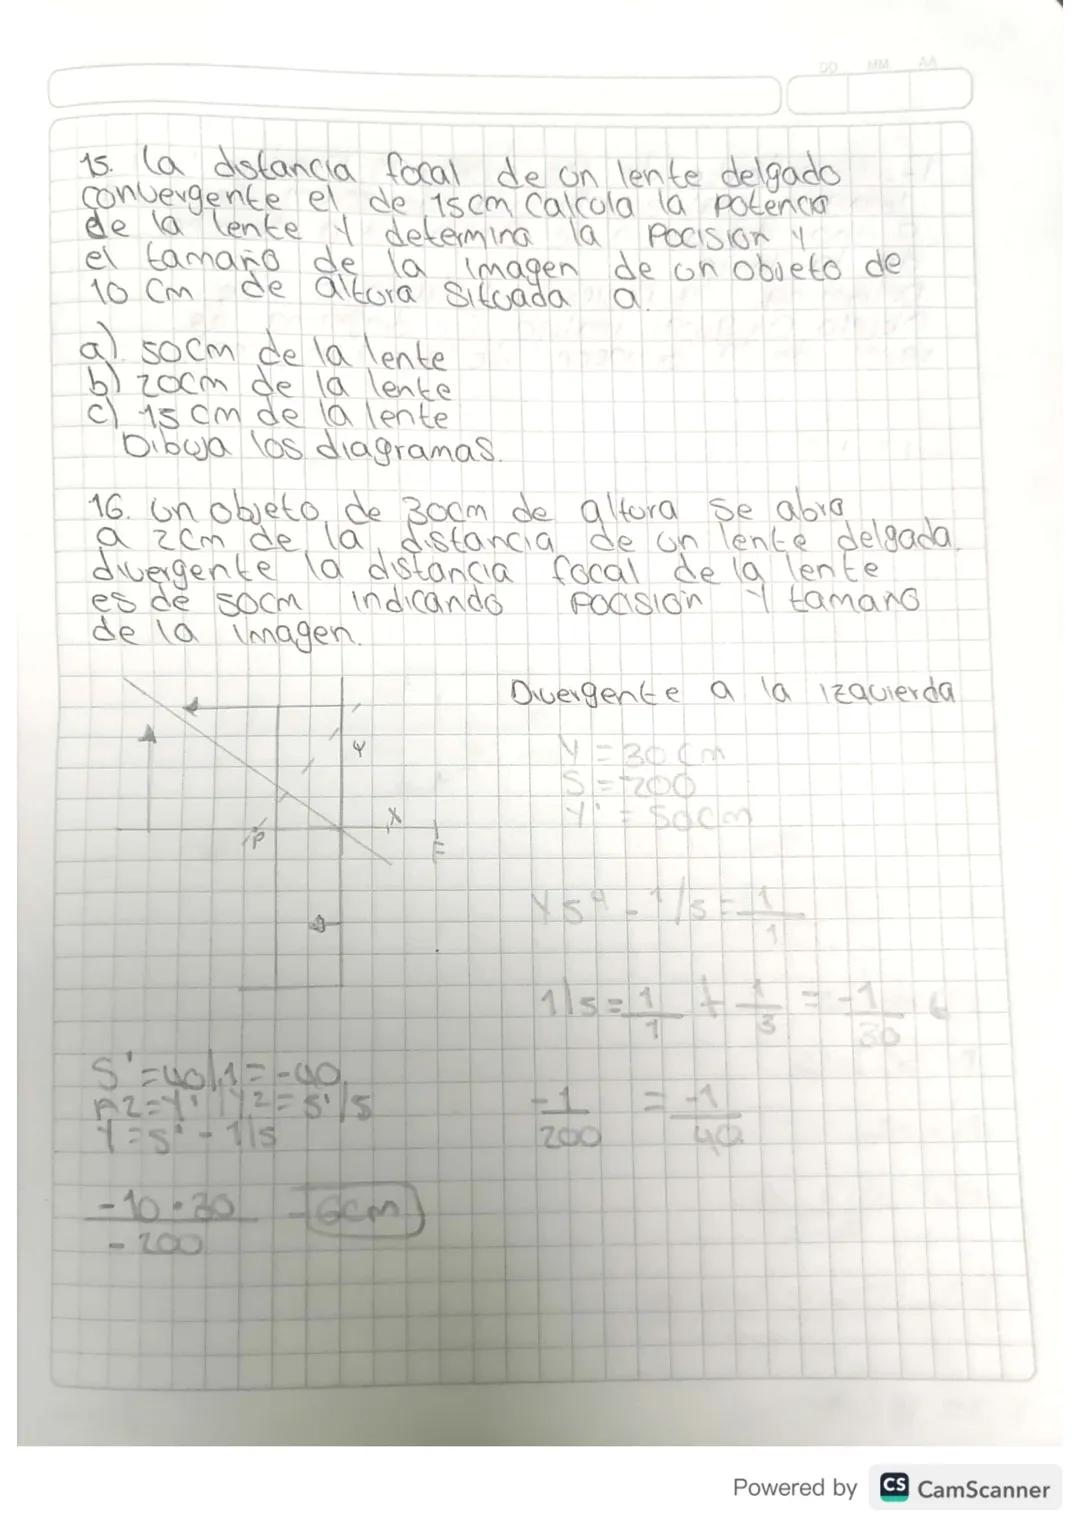 DD MM AA
15. La distancia focal de un lente delgado
convergente el de 15cm Calcula la potencia
de la lente y determina la Pocision y
el tamaño de la imagen de un objeto de
10 cm de altura situada a.
a). 50cm de la lente
b) 20cm de la lente
c) 15 cm de la lente
Dibuja los diagramas.
16. un objeto de 30cm de altura se abra
a 2cm de la distancia de un lente delgada.
divergente la distancia focal de la lente
es de 50cm indicando Pocision y tamano
de la imagen.
Divergente a la izquierda
Y = 30 cm
S = 200
Y' = 50cm
Y
X
F
1/s = 1/1 + 1/3 = -1/30
S' = 40/1 = -40
-1/200 = -1/40
Y = s' - 1/s
-10 · 30 / -200 = 6cm
Powered by CS CamScanner